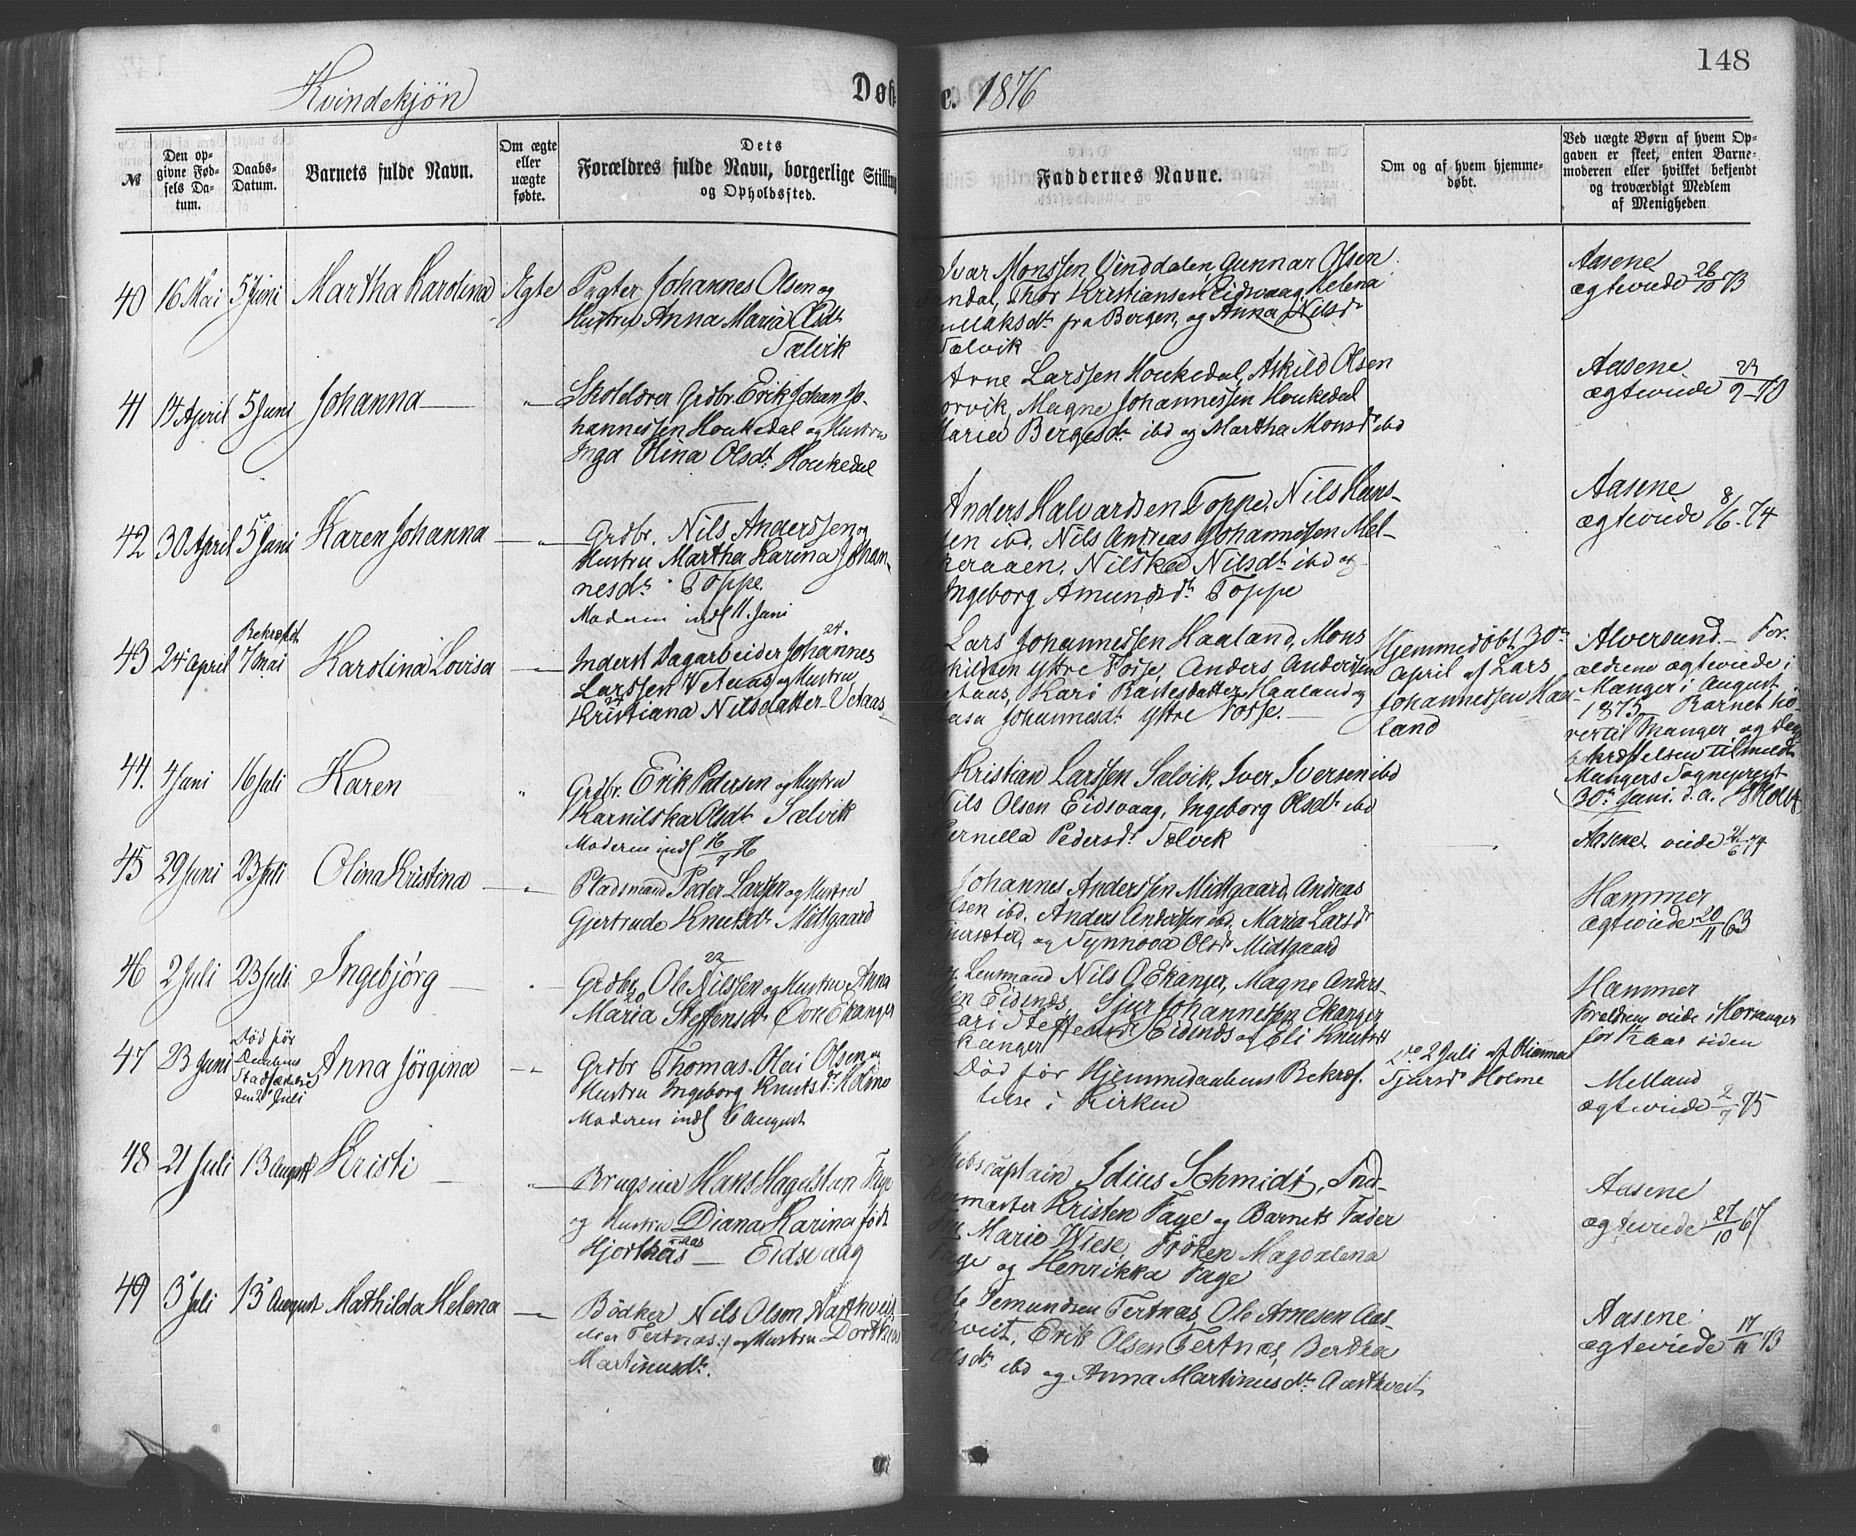 148
Kvindekjön Døb
e. 1876
№
Den op-
givne Fød-
sels Da-
tum.
Daabs-
Datum.
Barnets fulde Navn.
Om ægte
eller
uægte
fødte.
Dets
Forældres fulde Navn, borgerlige Stilling
og Opholdssted.
Faddernes Navne.
Om og af hvem hjemme-
døbt.
Ved uægte Børn af hvem Op-
gaven er skeet, enten Barne-
moderen eller hvilket bekjendt
og troværdigt Medlem
af Menigheden
40 16 Mai 5 Juni Martha Karolina Ægte
Pagter Johannes Olsen og
Hustru Anna Maria Olsdt
Sælvik
Ivar Monssen Vinddalen, Gunnar Olsen
Kristiansen Eidsvaag, Helena
fra Bergen, og Anna Nilsdt
Sælvik
Aasene
ægteviede 26/10 73
41 14 April 5 Juni Johanna — „
Skolelærer Grdbr. Erik Johan Jo-
hannessen Houkedal og Hustru
Inga Olina Olsdt. Houkedal
Arne Larssen Houkedal, Askild Olsen
Magne Johannessen Houkedal
Maria Bergesdt ibd og Martha Monsdr ibd
Aasene
ægteviede 23/9-70
42 30 April 5 Juni Karen Johanna — „
Grdbr. Nils Anderssen og
Hustru Martha Karina Johan-
nesdt. Toppe.
Moderen indl 11 Juni
Anders Halvardsen Toppe, Nils Hans-
sen ibd, Nils Andreas Johannessen Mel-
keraaen, Nilsdt ibd og
Ingeborg Amundsdt Toppe
Aasene
ægteviede 8/6-74
43 24 April Bekræft. 7 Mai Karolina Lovisa — „
Inderst Dagarbeider Johannes 24.
Larssen Vetaas og Hustru
Kristiana Nilsdatter Vetaas
Lars Johannessen Haaland, Mons
Ytre Tosse, Anders Anderssen
Vetaas, Kari Haaland og
Johannesdt Ytre Tosse.—
Hjemmedøbt 30te
April af Lars
Johannessen Haa-
land
Alversund.— For-
ældrene ægteviede i
Manger i August
1875. Barnet hö-
rer til Manger og
bekræftelsen tilmeldt
Mangers Sognepræst
30te Juni. d. a.
44. 4 Juni 16 Juli Karen „
Grdbr. Erik Pedersen og Hustru
Karnilska Olsdt. Sælvik
Moderen indl 16/7 76
Kristian Larssen Sælvik, Iver Iversen ibd
Nils Olsen Eidsvaag, Ingeborg Olsdt ibd
Pernilla Pedersdt Sælvik
Aasene viede 21/6 74
45 29 Juni 23 Juli Olina Kristina — „
Pladsmand Peder Larsen og Hustru
Gjertrude Knutsdt. Midtgaard
Johannes Anderssen Midtgaard, Andreas
Olsen ibd. Anders Andersen ibd. Maria Larsdt
og Synnova Olsdt Midtgaard
Hammer
ægteviede 20/11 63
46 2 Juli 23 Juli Ingebjörg — „
Grdbr. Ole Nilssen 22 og Hustru Anna
Maria Steffensdt Övre Ekanger
Lensmand Nils O Ekanger, Magne Anders-
sen Eidsnæs, Sjur Johannessen Ekanger
Kari Steffensdt Eidsnæs og Eli Knutsdt
Ekanger
Hammer
Forældrene viede i Hosanger
for 1½ Aar siden
47 23 Juni Död för Daabens Stadfæstelse den 2 Juli Anna Jörgina — „
Grdbr Thomas Olai Olsen og
Hustru Ingeborg Knutsdt Holme
Moderen indl 6 August
Död för Hjemmedaabens Bekræf-
telse i Kirken
2 Juli af Olianna
Sjursdt Holme
Melland
ægteviede 2/7 75
48 21 Juli 13 August Kristi — „
Brugseier Hans Hagelsteen Faye
og Hustru Diana Karina født
Hjorthaas — Eidsvaag
Skibscaptain Idius Schmidt,
Kristen Faye og Barnets Fader
Marie Wiese, Fröken Magdalena
Faye og Henrikka Faye
Aasene
ægteviede 27/10 67
49 3 Juli 13 August Mathilda Helena — „
Bödker Nils Olsen Aastveit
eller Tertnæs:) og Hustru Dorthea
Martinusdt.
Ole Semundsen Tertnæs, Ole Arnesen Aas-
tveit, Erik Olsen Tertnæs, Bertha
Olsdt ibd og Anna Martinusdt. Aastveit
Aasene
ægteviede 17/11 73